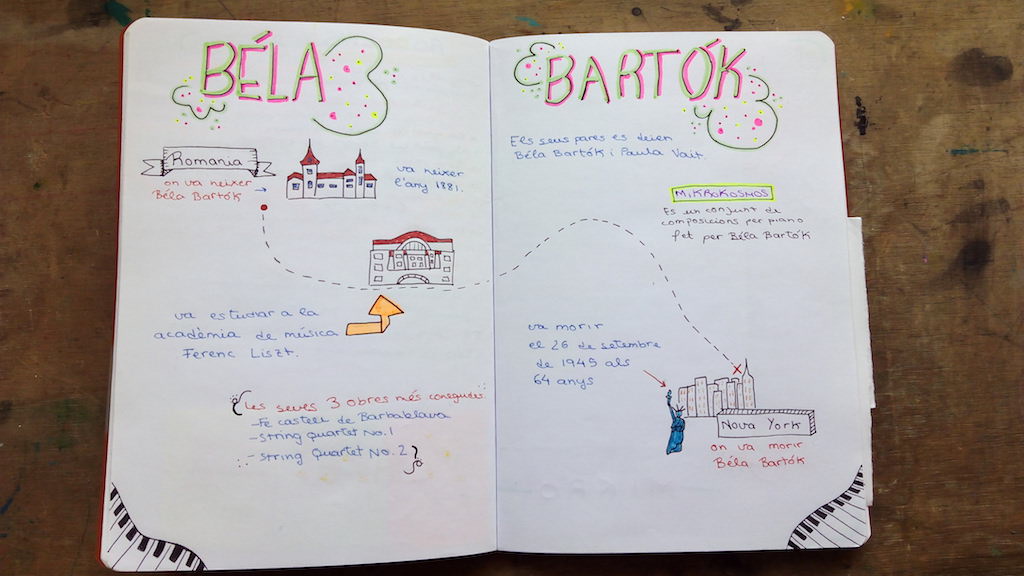 BÉLA
Romania
on va neixer
Béla Bartók
va neixer
l'any 1881.
va estudiar a la
acadèmia de música
Ferenc Liszt.
Les seves 3 obres més conegudes:
- Fe castell de Barbablava
- String Quartet No. 1
- String Quartet No. 2
BARTÓK
Els seus pares es deien
Béla Bartók i Paula Voit.
MIKROKOSMOS
Es un conjunt de
composicions per piano
fet per Béla Bartók
va morir
el 26 de setembre
de 1945 als
64 anys
Nova York
on va morir
Béla Bartók